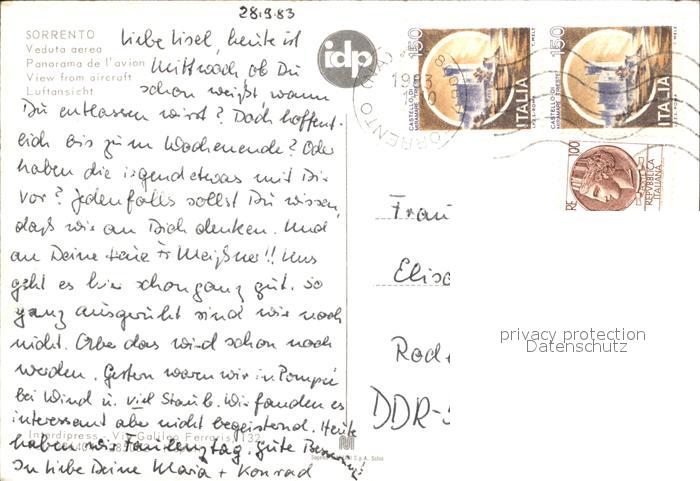 28.9.83
SORRENTO
Veduta aerea
Panorama de l'avion
View from aircraft
Luftansicht
idp
Liebe Lisel, heute ist
Mittwoch ob Du
schon weißt wann
Du entlassen wirst? Doch hoffent-
lich bis zum Wochenende? Oder
haben die irgendetwas mit Dir
vor? Jedenfalls sollst Du wissen,
daß wir an Dich denken. Und
an Deine Fr Meißner!! Uns
geht es hier schon ganz gut. So
ganz ausgeruht sind wir noch
nicht. Aber das wird schon noch
werden. Gestern waren wir in Pompei
bei Wind u. viel Staub. Wir fanden es
interessant aber nicht begeisternd. Heute
haben wir Faulenztag. Gute
In Liebe Deine Maria + Konrad
Interdipress - Via Galileo Ferraris, 132
150
CASTELLO DI
MIRAMARE - TRIESTE
ITALIA
150
CASTELLO DI
MIRAMARE - TRIESTE
ITALIA
100
REPVBBLICA
ITALIANA
SORRENTO (NA)
Frau
Elis
Rad
DDR-
privacy protection
Datenschutz